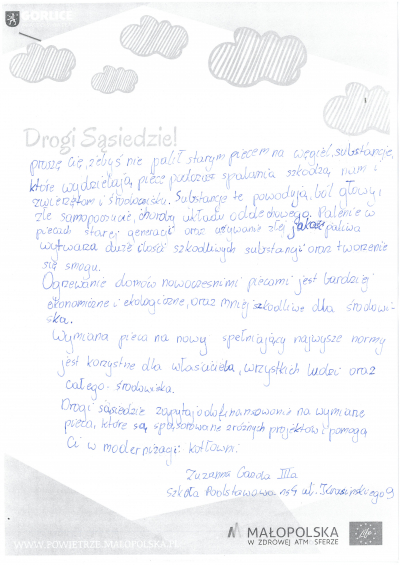 GORLICE
Drogi Sąsiedzie!
proszę Cię, żebyś nie palił starym piecem na węgiel, substancje,
które wydzielają, piece podczas spalania szkodzą nam i
zwierzętom i środowisku. Substancje te powodują, ból głowy i
złe samopoczucie, choroby układu oddechowego. Palenie w
piecach starej generacji oraz używanie złej jakości paliwa
wytwarza duże ilości szkodliwych substancji oraz tworzenie
się smogu.
Ogrzewanie domów nowoczesnymi piecami jest bardziej
ekonomiczne i ekologiczne, oraz mniej szkodliwe dla środowi-
ska.
Wymiana pieca na nowy spełniający najwyższe normy
jest korzystne dla właściciela, wszystkich ludzi oraz
całego środowiska.
Drogi sąsiedzie zapytaj o dofinansowanie na wymianę
pieca, które są sponsorowane z różnych projektów i pomogą
Ci w modernizacji kotłowni
Zuzanna IIIa
Szkoła Podstawowa nr 4 ul. 9
MAŁOPOLSKA
W ZDROWEJ ATMOSFERZE
WWW.POWIETRZE.MALOPOLSKA.PL